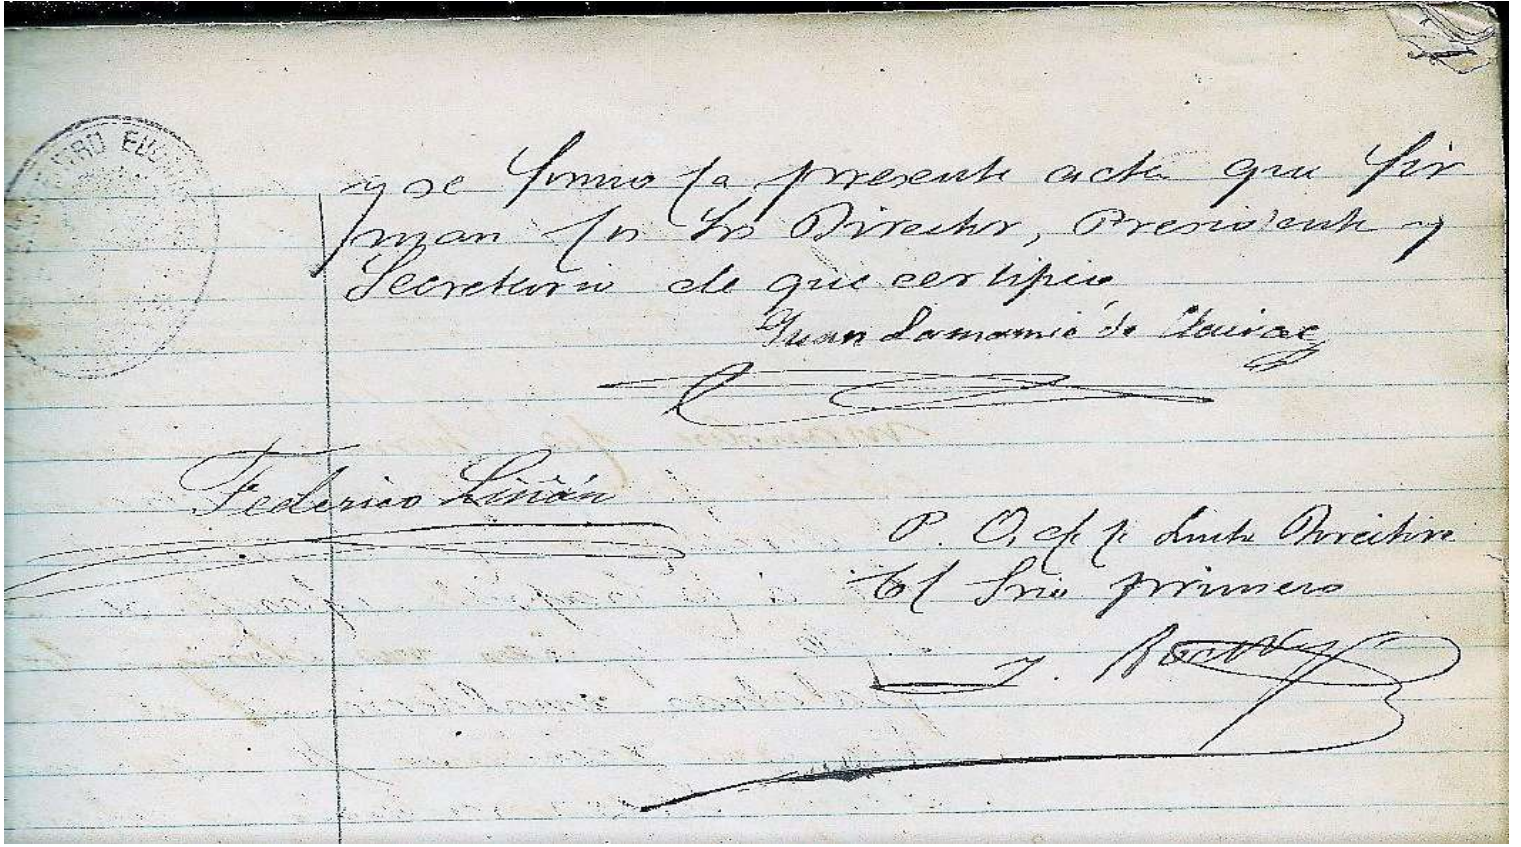 y se firmo la presente acta que fir
man los Srs Director, Presidente y
Secretario de que certifico
Juan Lamamié de Clairac
Federico Liñán
P. O. de la Junta Directiva
El Srio primero